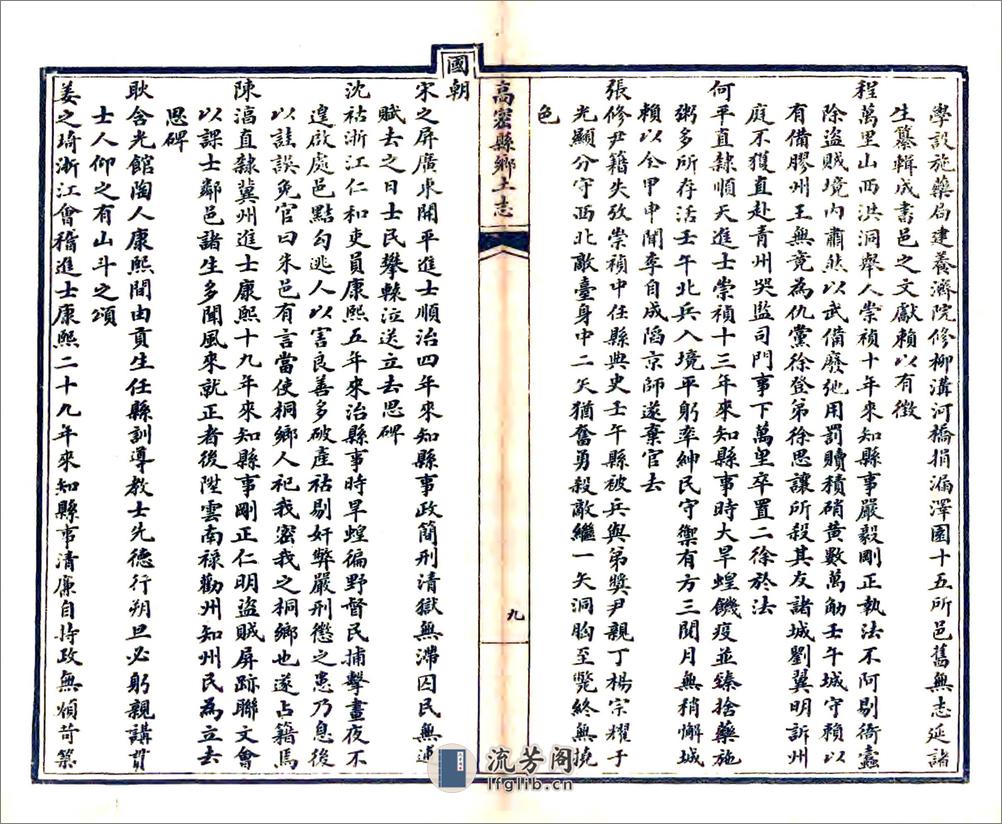 學設施藥局建養濟院修柳溝河橋捐漏澤園十五所邑舊無志延諸
生纂輯成書邑之文獻賴以有徵
程萬里山西洪洞舉人崇禎十年來知縣事嚴毅剛正執法不阿剔衙蠹
除盜賊境內肅然以武備廢弛用罰贖積硝黃數萬觔壬午城守賴以
有備膠州王無竟為仇黨徐登第徐思讓所殺其友諸城劉翼明訴州
庭不獲直赴青州哭監司門事下萬里卒置二徐於法
何平直隸順天進士崇禎十三年來知縣事時大旱蝗饑疫並臻捨藥施
粥多所存活壬午北兵入境平躬率紳民守禦有方三閱月無稍懈城
賴以全甲申聞李自成陷京師遂棄官去
張修尹籍失攷崇禎中任縣典史壬午縣被兵與弟獎尹親丁楊宗耀于
光顯分守西北敵臺身中二矢猶奮勇殺敵繼一矢洞胸至斃終無撓
色
高密縣鄉土志
九
國朝
宋之屏廣東開平進士順治四年來知縣事政簡刑清獄無滯囚民無逋
賦去之日士民攀轅泣送立去思碑
沈祜浙江仁和吏員康熙五年來治縣事時旱蝗徧野督民捕擊晝夜不
遑啟處邑點勾逃人以害良善多破產祜剔奸弊嚴刑懲之患乃息後
以詿誤免官曰朱邑有言當使桐鄉人祀我密我之桐鄉也遂占籍焉
陳湻直隸冀州進士康熙十九年來知縣事剛正仁明盜賊屏跡聯文會
以課士鄰邑諸生多聞風來就正者後陞雲南祿勸州知州民為立去
思碑
耿含光館陶人康熙間由貢生任縣訓導教士先德行朔旦必躬親講貫
士人仰之有山斗之頌
姜之琦浙江會稽進士康熙二十九年來知縣事清廉自持政無煩苛築
流芳阁
lfglib.cn